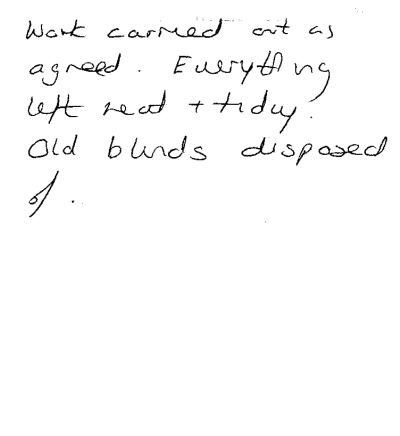 Work carried out as
agreed. Everything
left neat + tidy.
Old blinds disposed
of.